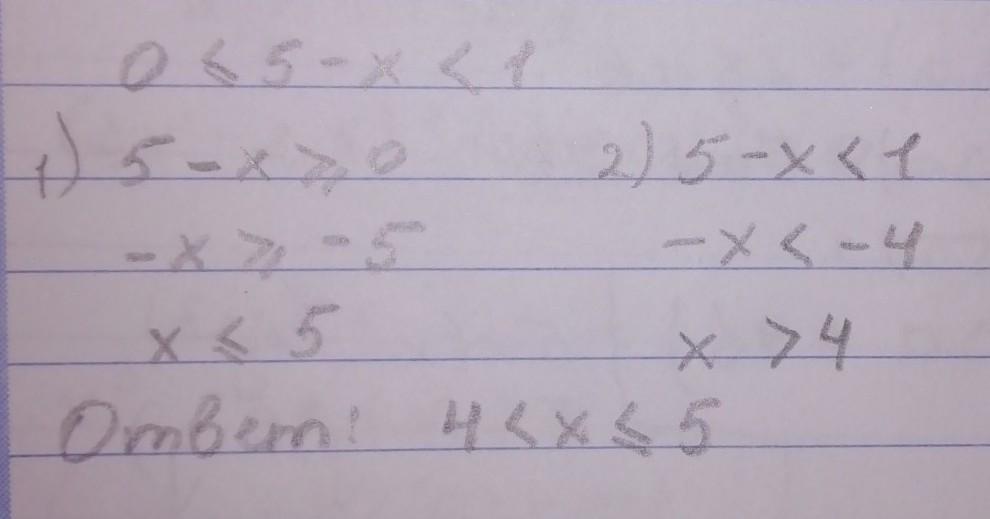 0 ⩽ 5 - x < 1
1) 5 - x ⩾ 0 2) 5 - x < 1
-x ⩾ -5 -x < -4
x ⩽ 5 x > 4
Ответ: 4 < x ⩽ 5